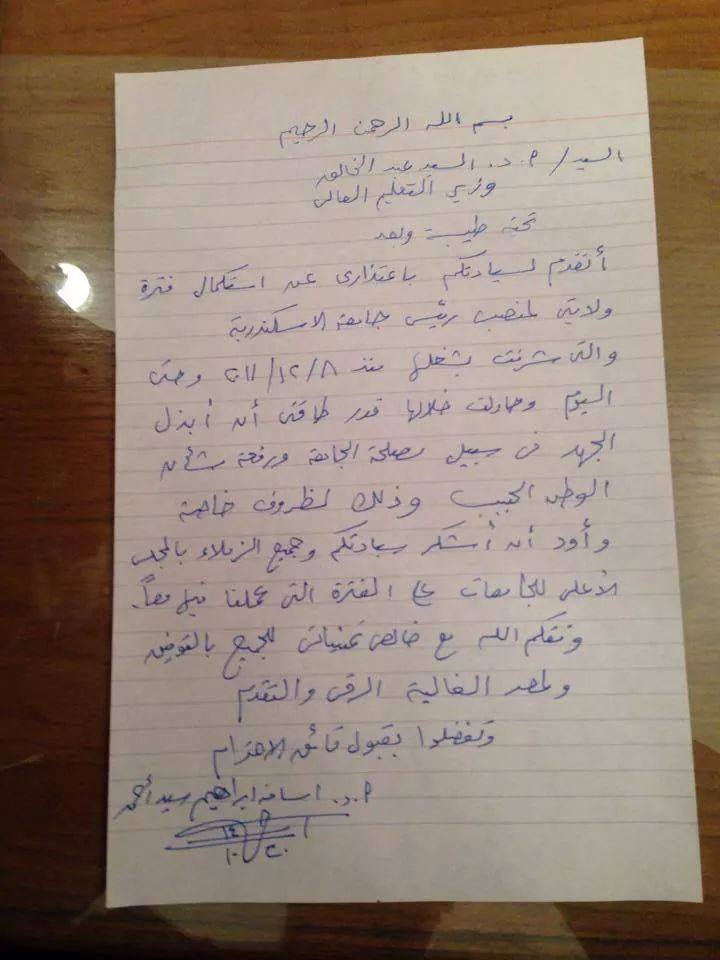 بسم الله الرحمن الرحيم
السيد/ م.د. السيد عبد الخالق
وزير التعليم العالى
تحية طيبة وبعد
أتقدم لسيادتكم باعتذارى عن استكمال فترة
ولايتى لمنصب رئيس جامعة الاسكندرية
والتى شرفت بشغلها منذ ٢٠١١/١٢/٨ وحتى
اليوم وحاولت خلالها قدر طاقتى أن أبذل
الجهد فى سبيل مصلحة الجامعة ورفعة شأن
الوطن الحبيب وذلك لظروف خاصة
وأود أن أشكر سيادتكم وجميع الزملاء بالمجلس
الأعلى للجامعات على الفترة التى عملنا فيها معاً.
وفقكم الله مع خالص تمنياتى للجميع بالتوفيق
ولمصر الغالية الرقى والتقدم
وتفضلوا بقبول فائق الاحترام
م.د. اسامه ابراهيم سيد أحمد